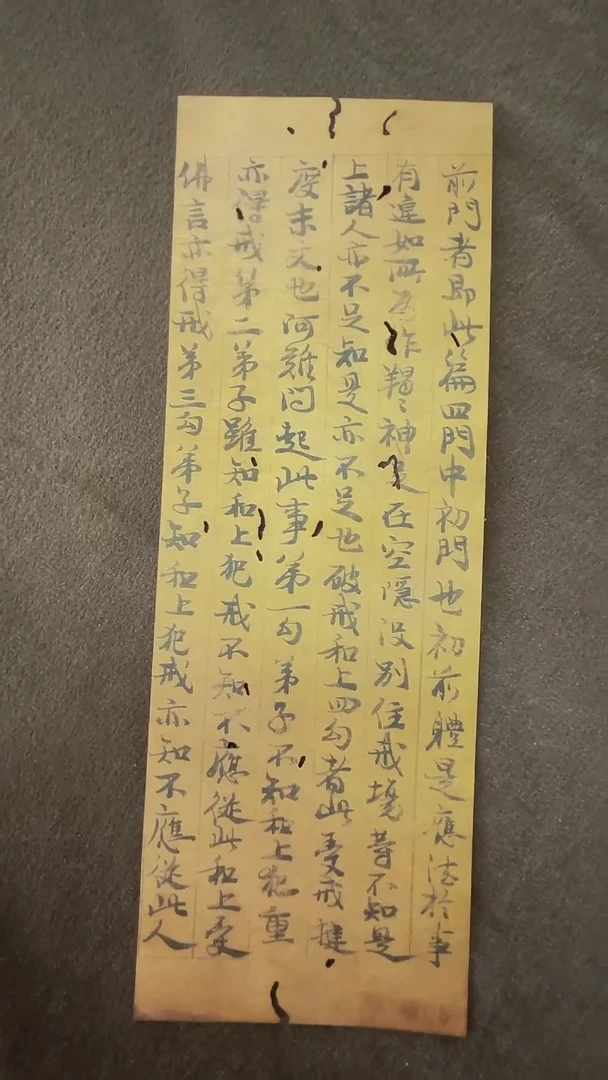 前門者即此篇四門中初門也初前體是應法於事
有違如所為作羯ミ神足在空隱沒別住戒境等不知是
上諸人亦不足知是亦不足也破戒和上四勾者此受戒揵
度末文也阿難問起此事第一勾弟子不知和上犯重
亦得戒第二弟子雖知和上犯戒不知不應從此和上受
佛言亦得戒第三勾弟子知和上犯戒亦知不應從此人